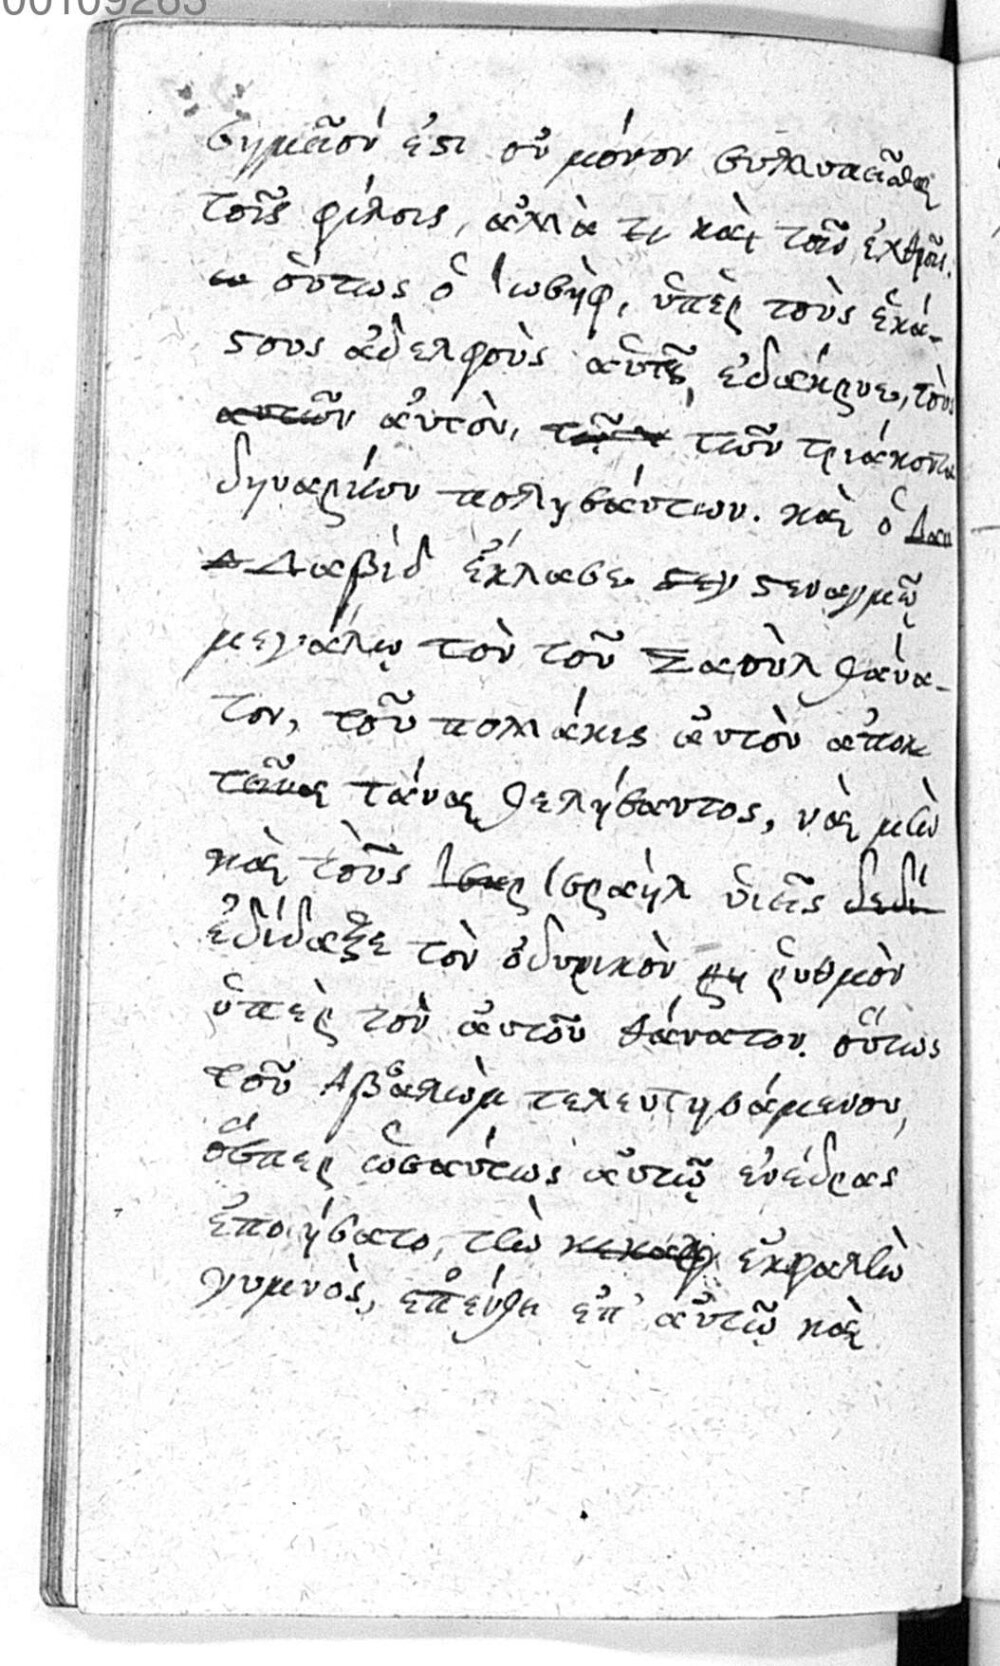 00109283
σημεῖόν ἐστι οὐ μόνον συλλυπεῖσθαι
τοῖς φίλοις, ἀλλὰ καὶ τοῖς ἐχθροῖς.
οὕτως ὁ Ἰωσὴφ, ὑπὲρ τοὺς ἑκά-
στους ἀδελφοὺς αὑτοῦ, ἐδάκρυε, τοὺς
αὐτῶν αὐτὸν, τῶν τριάκοντα
δηναρίων πολησάντων. καὶ ὁ Δαυ
Δαβὶδ ἔκλαυσε στεναγμῷ
μεγάλῳ τὸν τοῦ Σαοὺλ θάνα-
τον, τοῦ πολλάκις αὐτὸν ἀποκ
τεῖναι τάναι θελήσαντος, ναὶ μὴν
καὶ τοὺς Ισρ Ισραὴλ υἱεῖς δεδί
ἐδίδαξε τὸν ὀδυρικὸν ῥυθμὸν
ὑπὲρ τὸν αὐτοῦ θάνατον. οὕτως
τοῦ Αβσαλὼμ τελευτησάμενου,
ὅσπερ ὡσαύτως αὐτῷ ἐνέδρας
ἐποιήσατο, τὴν κεκαφ ἐκφαλὴν
γυμνὸς, ἐπένθει ἐπ' αὐτῷ καὶ